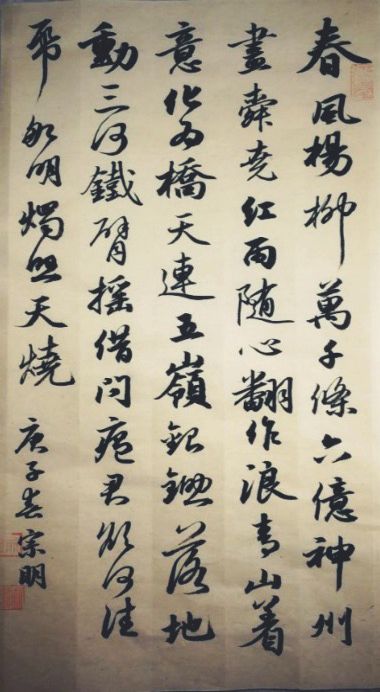 春風楊柳萬千條六億神州
盡舜尭紅雨隨心翻作浪青山着
意化為橋天連五嶺銀鋤落地
動三河鐵臂摇借问瘟君欲何往
帋船明燭照天燒
庚子春宗明